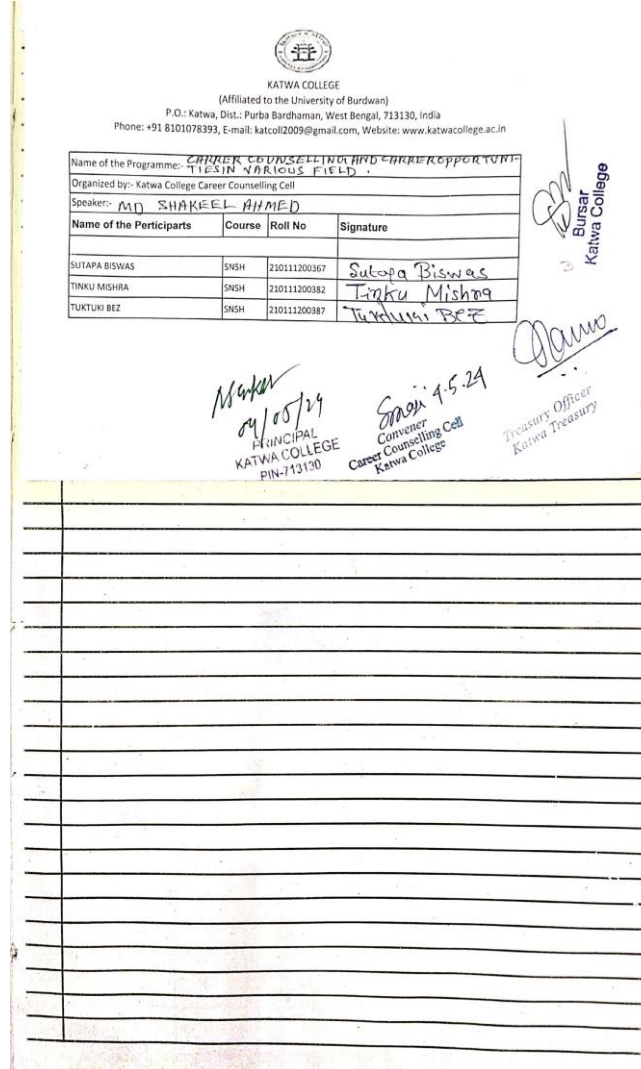 KATWA COLLEGE
(Affiliated to the University of Burdwan)
P.O.: Katwa, Dist.: Purba Bardhaman, West Bengal, 713130, India
Phone: +91 8101078393, E-mail: katcoll2009@gmail.com, Website: www.katwacollege.ac.in
Name of the Programme:- CARRER COUNSELLING AND CARREROPPORTUNI-
TIESIN VARIOUS FIELD .
Organized by:- Katwa College Career Counselling Cell
Speaker:- MD SHAKEEL AHMED
Name of the Perticiparts Course Roll No Signature
SUTAPA BISWAS SNSH 210111200367 Sutapa Biswas
TINKU MISHRA SNSH 210111200382 Tinku Mishra
TUKTUKI BEZ SNSH 210111200387 BEZ
Bursar
Katwa College
04/05/24
PRINCIPAL
KATWA COLLEGE
PIN-713130
4.5.24
Convener
Career Counselling Cell
Katwa College
Treasury Officer
Katwa Treasury